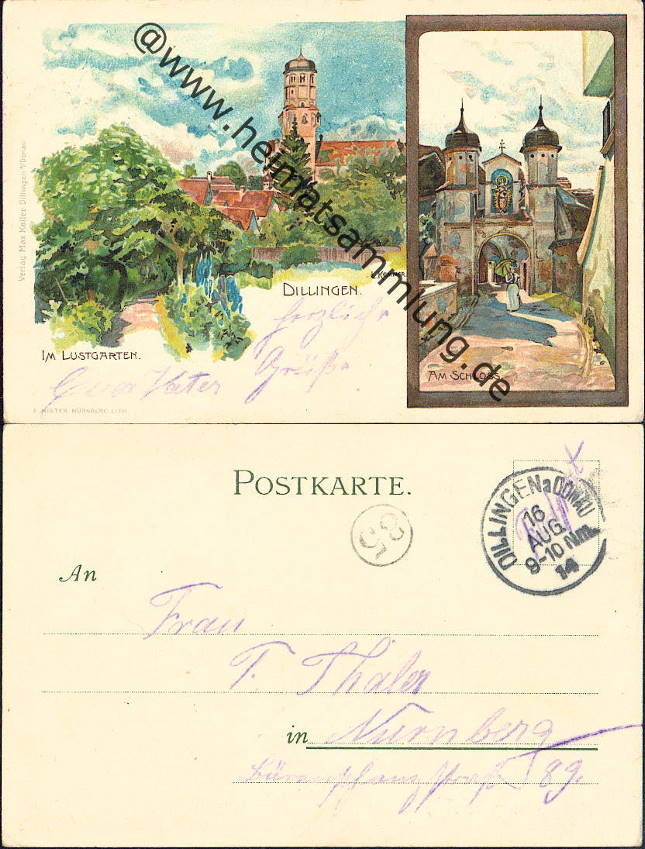 @www.heimatsammlung.de
Verlag Max Keller Dillingen a/Donau
DILLINGEN.
IM LUSTGARTEN.
AM SCHLOSS.
herzliche
Grüße
Euer Vater
NISTER NÜRNBERG LITH.
POSTKARTE.
DILLINGEN a DONAU
16
AUG.
9-10 Nm.
14
35
An
Frau
T. Thaler
in Nürnberg
89.